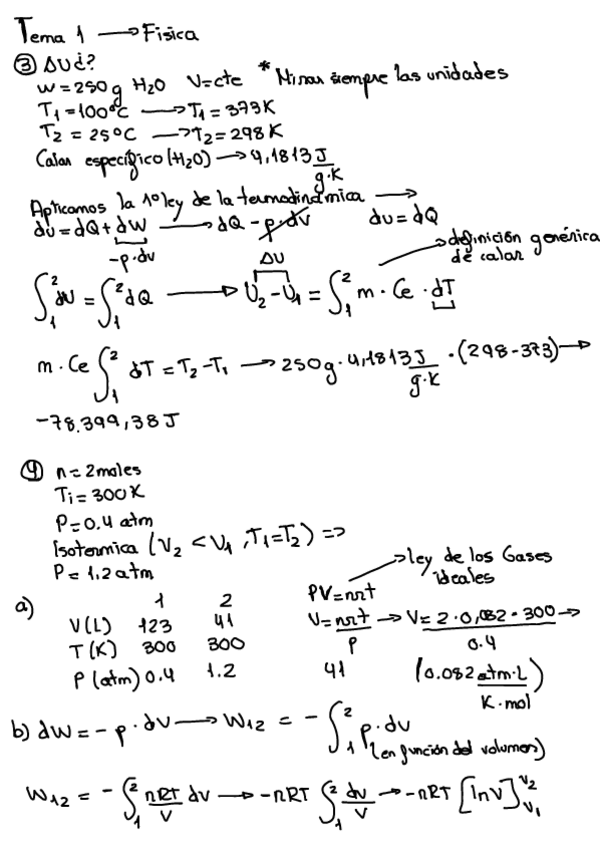 Tema 1 → Fisica
③ ΔU¿?
w = 250g H₂O V=cte * Mirar siempre las unidades
T₁ = 100ºC → T₁ = 373K
T₂ = 25ºC → T₂ = 298K
Calor específico (H₂O) → 4,1813 J/g·K
Aplicamos la 1º ley de la termodinámica →
du = dQ + dW → dQ - p·dv du = dQ
-p·dv ΔU definición genérica de calor
∫₁² dU = ∫₁² dQ → U₂ - U₁ = ∫₁² m · Ce · dT
m · Ce ∫₁² dT = T₂ - T₁ → 250g · 4,1813 J/g·K · (298-373) →
-78.399,38 J
④ n = 2 moles
Ti = 300K
P = 0.4 atm
Isotermica (V₂ < V₁, T₁=T₂) =>
P = 1.2 atm
ley de los Gases ideales
a) 1 2 PV=nrt
V(L) 123 41 V = nrt/P → V = 2·0,082·300/0.4 →
T(K) 300 300
P(atm) 0.4 1.2 41 (0.082 atm·L/K·mol)
b) dW = - p · dv → W₁₂ = - ∫₁² p·dv
(en función del volumen)
W₁₂ = - ∫₁² nRT/V dv → -nRT ∫₁² dv/V → -nRT [lnV]ᵥ₁ᵛ²